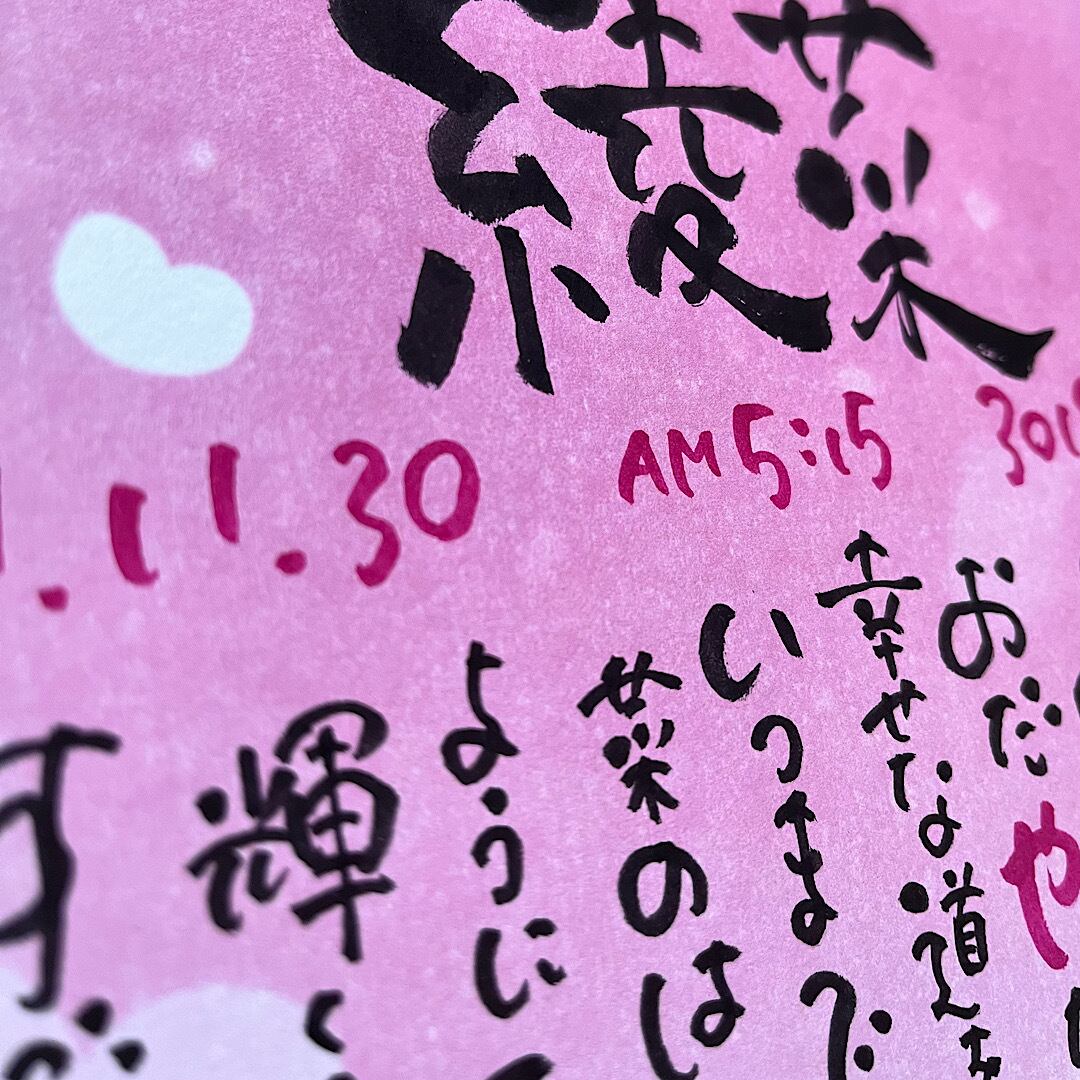 綾菜
.11.30 AM 5:15 30
おだや
幸せな道を
いつまで
菜のは
ように
輝く
す